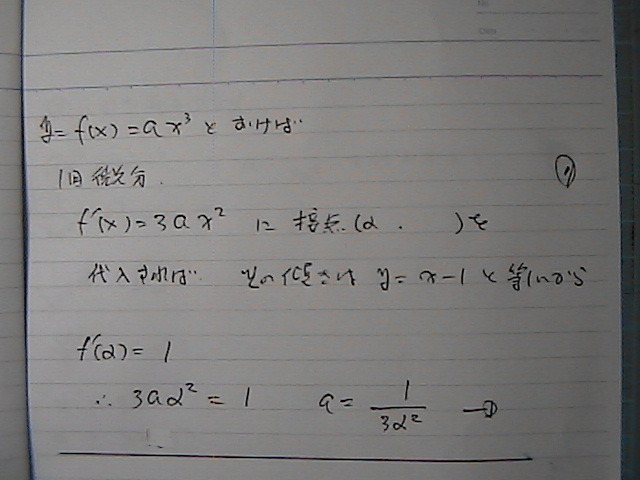 y=f(x)=ax³とおけば
1回微分.
①
f'(x)=3ax² に 接点(α . )を
代入すれば その傾きは y=x-1と等しいから
f'(α)=1
∴ 3aα²=1 a=1/3α² —①